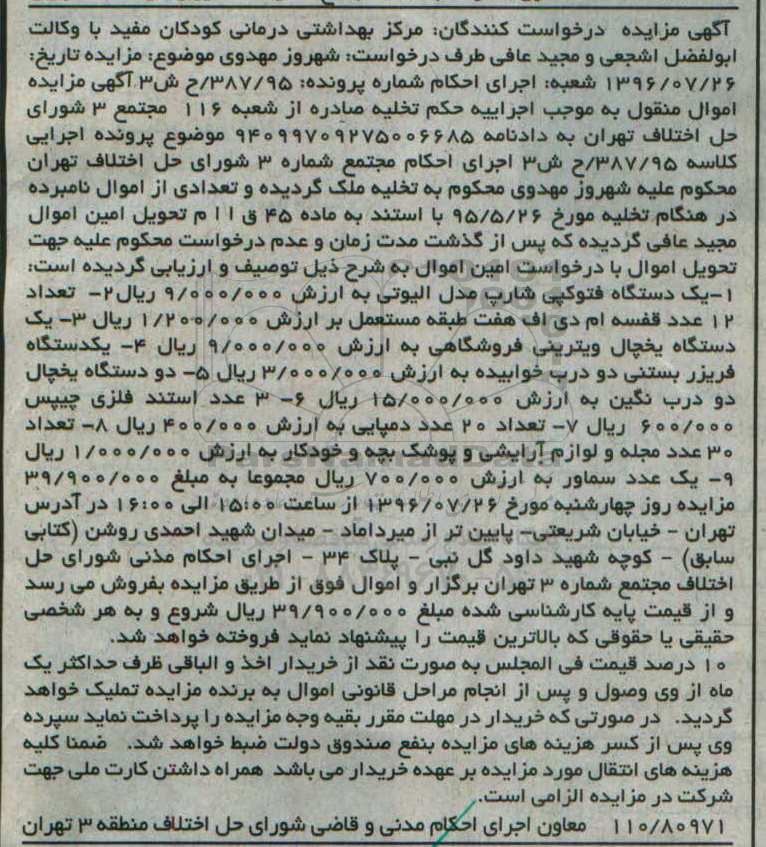 آگهی مزایده درخواست کنندگان: مرکز بهداشتی درمانی کودکان مفید با وکالت
ابولفضل اشجعی و مجید عافی طرف درخواست: شهروز مهدوی موضوع: مزایده تاریخ:
۱۳۹۶/۰۷/۲۶ شعبه: اجرای احکام شماره پرونده: ۳۸۷/۹۵/ح ش۳ آگهی مزایده
اموال منقول به موجب اجراییه حکم تخلیه صادره از شعبه ۱۱۶ مجتمع ۳ شورای
حل اختلاف تهران به دادنامه ۹۴۰۹۹۷۰۹۲۷۵۰۰۶۶۸۵ موضوع پرونده اجرایی
کلاسه ۳۸۷/۹۵/ح ش۳ اجرای احکام مجتمع شماره ۳ شورای حل اختلاف تهران
محکوم علیه شهروز مهدوی محکوم به تخلیه ملک گردیده و تعدادی از اموال نامبرده
در هنگام تخلیه مورخ ۹۵/۵/۲۶ با استند به ماده ۴۵ ق ا ا م تحویل امین اموال
مجید عافی گردیده که پس از گذشت مدت زمان و عدم درخواست محکوم علیه جهت
تحویل اموال با درخواست امین اموال به شرح ذیل توصیف و ارزیابی گردیده است:
۱-یک دستگاه فتوکپی شارپ مدل الیوتی به ارزش ۹/۰۰۰/۰۰۰ ریال۲- تعداد
۱۲ عدد قفسه ام دی اف هفت طبقه مستعمل بر ارزش ۱/۲۰۰/۰۰۰ ریال ۳- یک
دستگاه یخچال ویترینی فروشگاهی به ارزش ۹/۰۰۰/۰۰۰ ریال ۴- یکدستگاه
فریزر بستنی دو درب خوابیده به ارزش ۳/۰۰۰/۰۰۰ ریال ۵- دو دستگاه یخچال
دو درب نگین به ارزش ۱۵/۰۰۰/۰۰۰ ریال ۶- ۳ عدد استند فلزی چیپس
۶۰۰/۰۰۰ ریال ۷- تعداد ۲۰ عدد دمپایی به ارزش ۴۰۰/۰۰۰ ریال ۸- تعداد
۳۰ عدد مجله و لوازم آرایشی و پوشک بچه و خودکار به ارزش ۱/۰۰۰/۰۰۰ ریال
۹- یک عدد سماور به ارزش ۷۰۰/۰۰۰ ریال مجموعا به مبلغ ۳۹/۹۰۰/۰۰۰
مزایده روز چهارشنبه مورخ ۱۳۹۶/۰۷/۲۶ از ساعت ۱۵:۰۰ الی ۱۶:۰۰ در آدرس
تهران - خیابان شریعتی- پایین تر از میرداماد - میدان شهید احمدی روشن (کتابی
سابق) - کوچه شهید داود گل نبی - پلاک ۳۴ - اجرای احکام مدنی شورای حل
اختلاف مجتمع شماره ۳ تهران برگزار و اموال فوق از طریق مزایده بفروش می رسد
و از قیمت پایه کارشناسی شده مبلغ ۳۹/۹۰۰/۰۰۰ ریال شروع و به هر شخصی
حقیقی یا حقوقی که بالاترین قیمت را پیشنهاد نماید فروخته خواهد شد.
۱۰ درصد قیمت فی المجلس به صورت نقد از خریدار اخذ و الباقی ظرف حداکثر یک
ماه از وی وصول و پس از انجام مراحل قانونی اموال به برنده مزایده تملیک خواهد
گردید. در صورتی که خریدار در مهلت مقرر بقیه وجه مزایده را پرداخت نماید سپرده
وی پس از کسر هزینه های مزایده بنفع صندوق دولت ضبط خواهد شد. ضمنا کلیه
هزینه های انتقال مورد مزایده بر عهده خریدار می باشد همراه داشتن کارت ملی جهت
شرکت در مزایده الزامی است.
۱۱۰/۸۰۹۷۱ معاون اجرای احکام مدنی و قاضی شورای حل اختلاف منطقه ۳ تهران